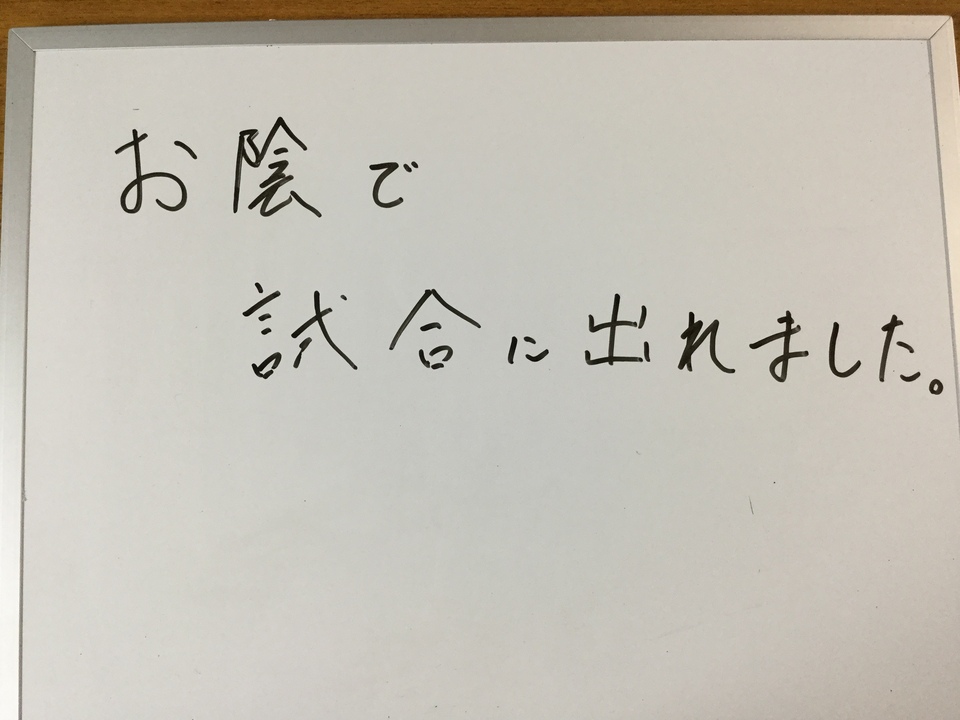 お陰で
試合に出れました。